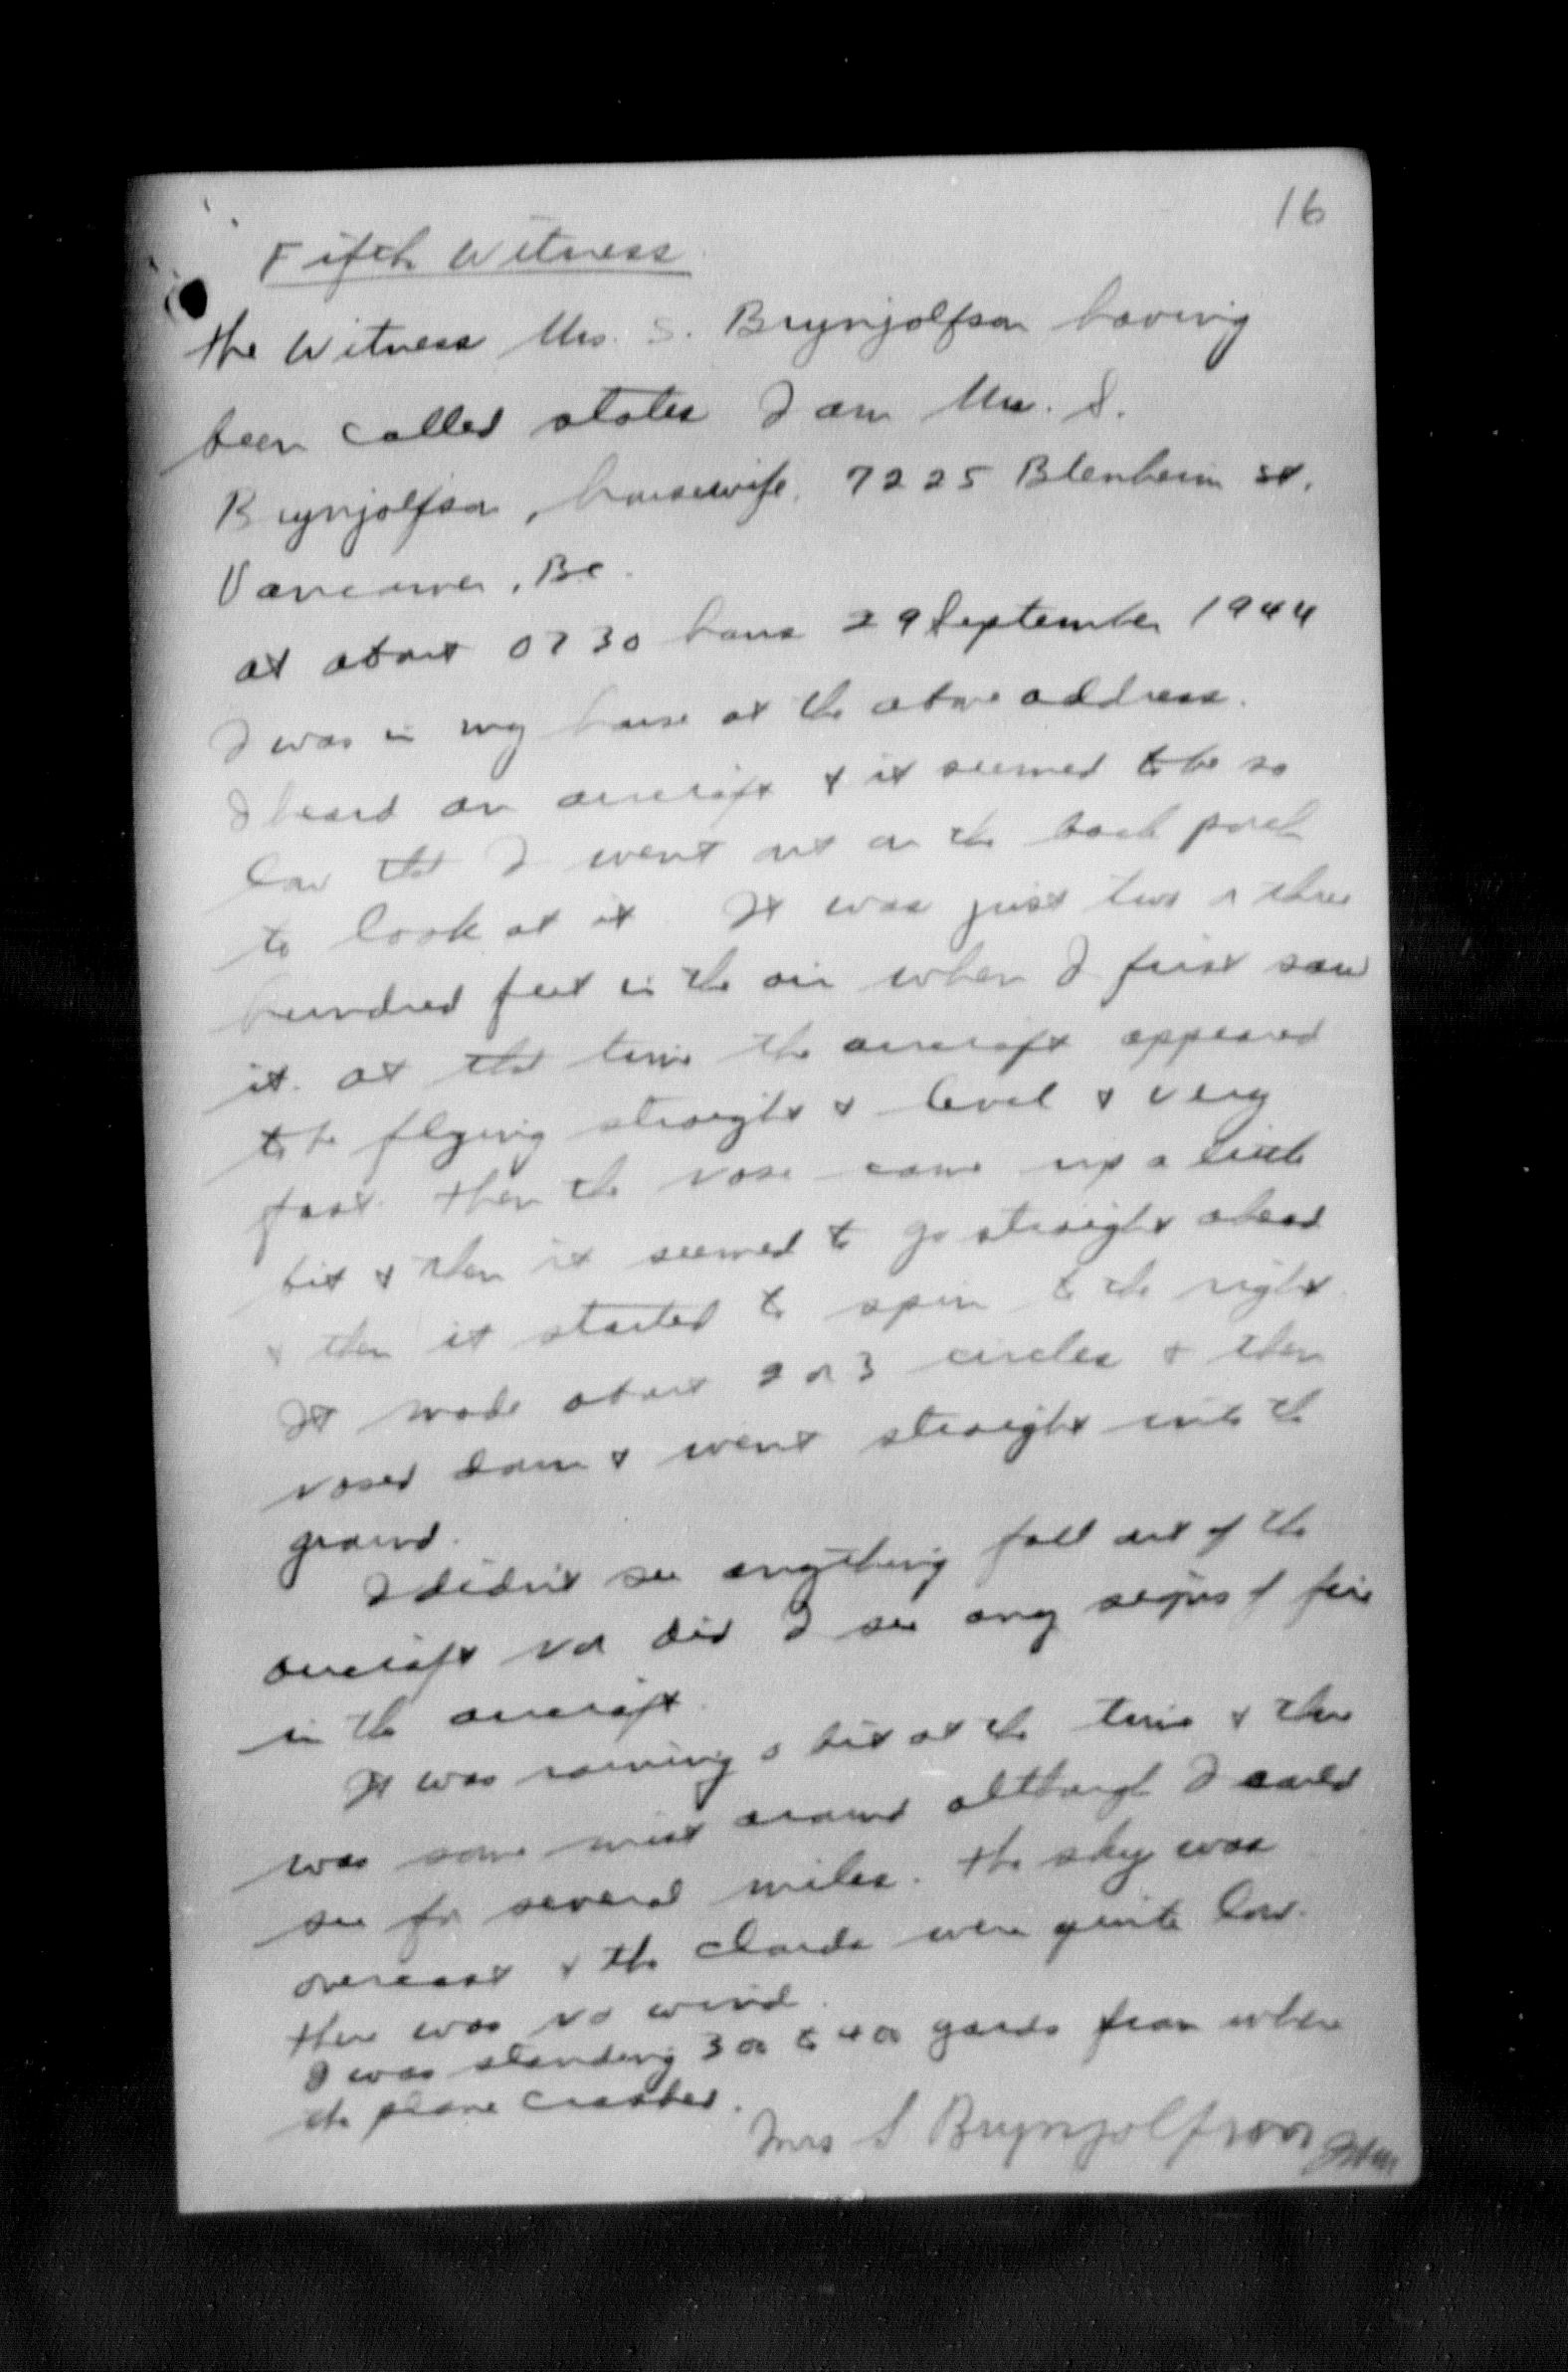 16
Fifth Witness
The Witness Mrs. S. Brynjolfson having
been called states I am Mrs. S.
Brynjolfson, housewife, 7225 Blenheim St.
Vancouver, BC.
at about 0730 hours 29 September 1944
I was in my house at the above address.
I heard an aircraft & it seemed to be so
low that I went out on the back porch
to look at it. It was just two or three
hundred feet in the air when I first saw
it. at that time the aircraft appeared
to be flying straight & level & very
fast. Then the nose came up a little
bit & then it seemed to go straight ahead
& then it started to spin to the right.
It made about 2 or 3 circles & then
nosed down & went straight into the
ground.
I didn't see anything fall out of the
aircraft nor did I see any signs of fire
in the aircraft.
It was raining a bit at the time & there
was some mist around although I could
see for several miles. The sky was
overcast & the clouds were quite low.
There was no wind.
I was standing 300 to 400 yards from where
the plane crashed.
Mrs S Brynjolfson